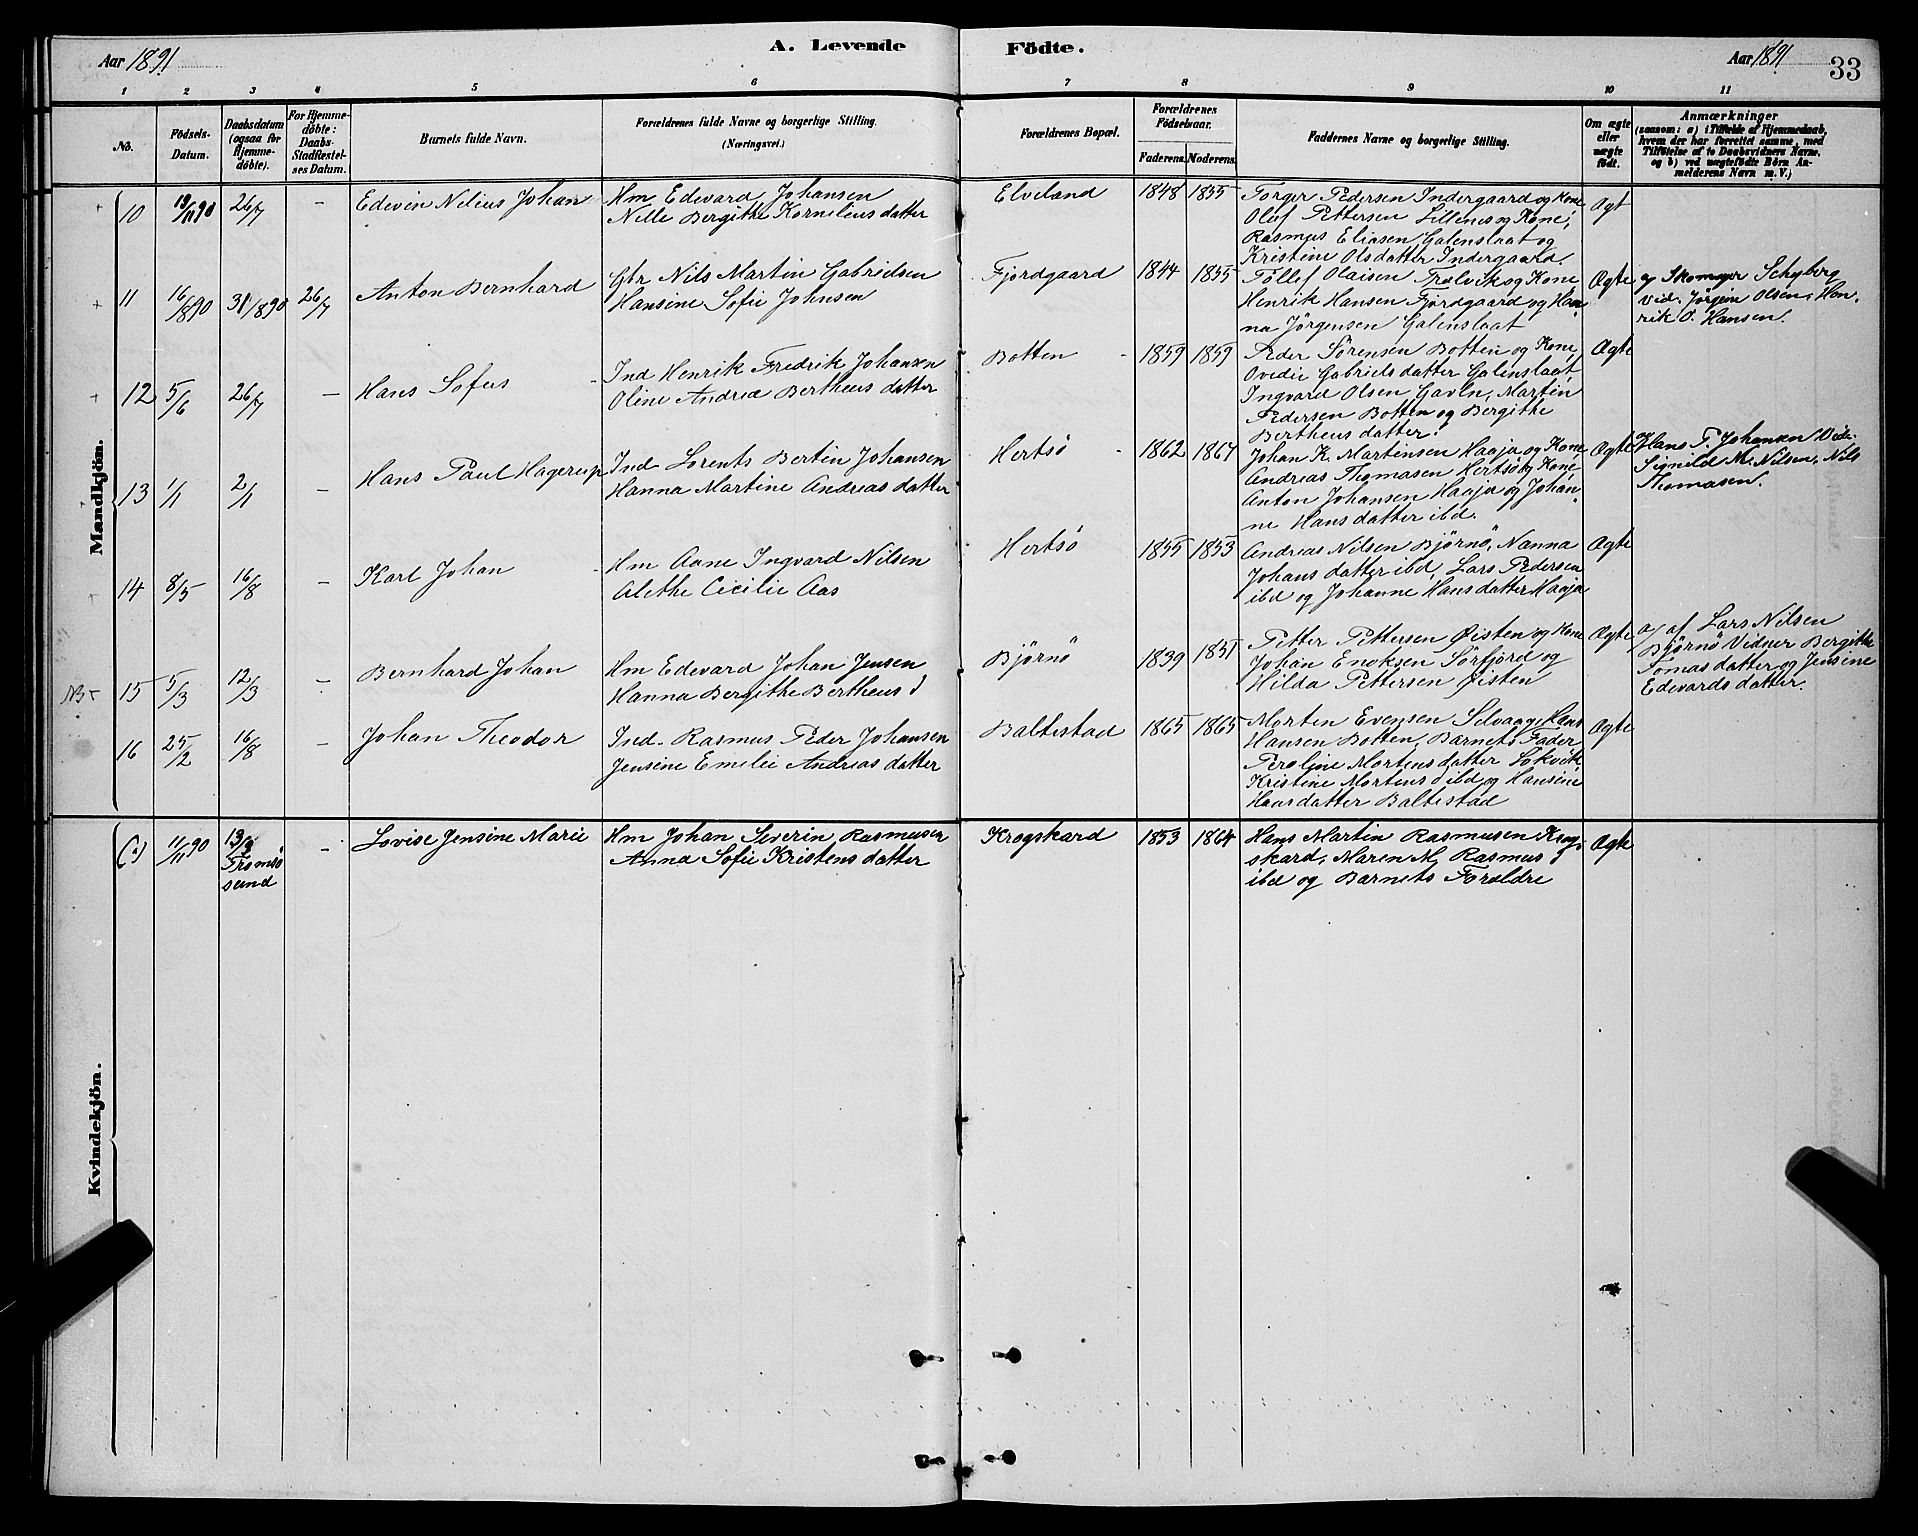 Aar 1891
A. Levende Födte.
Aar 1891
33
1 2 3 4 5 6 7 8 9 10 11
No.
Födsels-Datum.
Daabsdatum (ogsaa for Hjemmedöbte).
For Hjemmedöbte: Daabs-Stadfæstelses Datum.
Barnets fulde Navn.
Forældrenes fulde Navne og borgerlige Stilling.
(Næringsvei.)
Forældrenes Bopæl.
Forældrenes Födselsaar.
Faderens. Moderens.
Faddernes Navne og borgerlige Stilling.
Om ægte eller uægte födt.
Anmærkninger
(saasom: a) i Tilfælde af Hjemmedaab, hvem der har forrettet samme, med Tilföielse af to Daabsvidners Navne, og b) ved uægtefödte Börn Anmelderens Navn m. V.)
Mandkjön.
10 19/11 90 26/7 - Edevin Nilius Johan
Hm Edevard Johansen
Nille Bergithe Kornelius datter
Elveland 1848 1855
Torger Pedersen Indergaard og Kone
Oluf Pettersen Lillenes og Kone,
Rasmus Eliasen Galenslaat og
Kristine Olsdatter Indergaard.
Ægt
11 16/8 90 31/8 90 26/7 Anton Bernhard
Gbr Nils Martin Gabrielsen
Hansine Sofie Johnsen
Fjordgaard 1844 1855
Tollef Olaisen Trælvik og Kone
Henrik Hansen Fjordgaard og Han
na Jörgensen Galenslaat
Ægte
a/ Skomager Schyberg
Vid. Jörgine Olsen, Hen
rik O. Hansen.
12 5/6 26/7 - Hans Sofus
Ind Henrik Fredrik Johansen
Oline Andrea Bertheus datter
Botten 1859 1859
Peder Sörensen Botten og Kone,
Ovedie Gabriels datter Galenslaat,
Ingvard Olsen Gavln, Martin
Pedersen Botten og Bergithe
Bertheus datter.
Ægte
13 1/1 2/1 - Hans Paul Hagerup
Ind Lorents Bertin Johansen
Hanna Martine Andreas datter
Hertsö 1862 1867
Johan K. Martinsen Haaja og Kone
Andreas Thomasen Hertsö og Kone
Anton Johansen Haaja og Johan
ne Hans datter ibd.
Ægte
Hans P. Johansen Vid.
Signild M. Nilsen, Nils
Thomasen.
14 8/5 16/8 - Karl Johan
Hm Aane Ingvard Nilsen
Alethe Cicilie Aas
Hertsö 1855 1853
Andreas Nilsen Björnö, Nanna
Johans datter ibd, Lars Pedersen
ibd og Johanne Hans datter Haaja
Ægte
NB 15 5/3 12/3 - Bernhard Johan
Hm Edevard Johan Jensen
Hanna Bergithe Bertheus d
Björnö 1839 1851
Petter Pettersen Øisten og Kone
Johan Enoksen Sörfjord og
Hilda Pettersen Øisten
Ægte
a/ af Lars Nilsen
Björnö Vidner Bergithe
Tomas datter og Jensine
Edevards datter.
16 25/2 16/8 - Johan Theodor
Ind. Rasmus Peder Johansen
Jensine Emilie Andreas datter
Baltestad 1865 1865
Morten Evensen Selvaag, Hans
Hansen Botten, Barnets Fader
Peroline Mortens datter Lökvik,
Kristine Mortens d ibd og Hansine
Hans datter Baltestad
Ægte
Kvindekjön.
(1) 11/11 90 13/3 Tromsö
sund
- Lovise Jensine Marie
Hm Johan Severin Rasmusen
Anna Sofie Kristens datter
Krogskard 1853 1864
Hans Martin Rasmusen Krog
skard, Maren M. Rasmus d
ibd og Barnets Forældre
Ægte